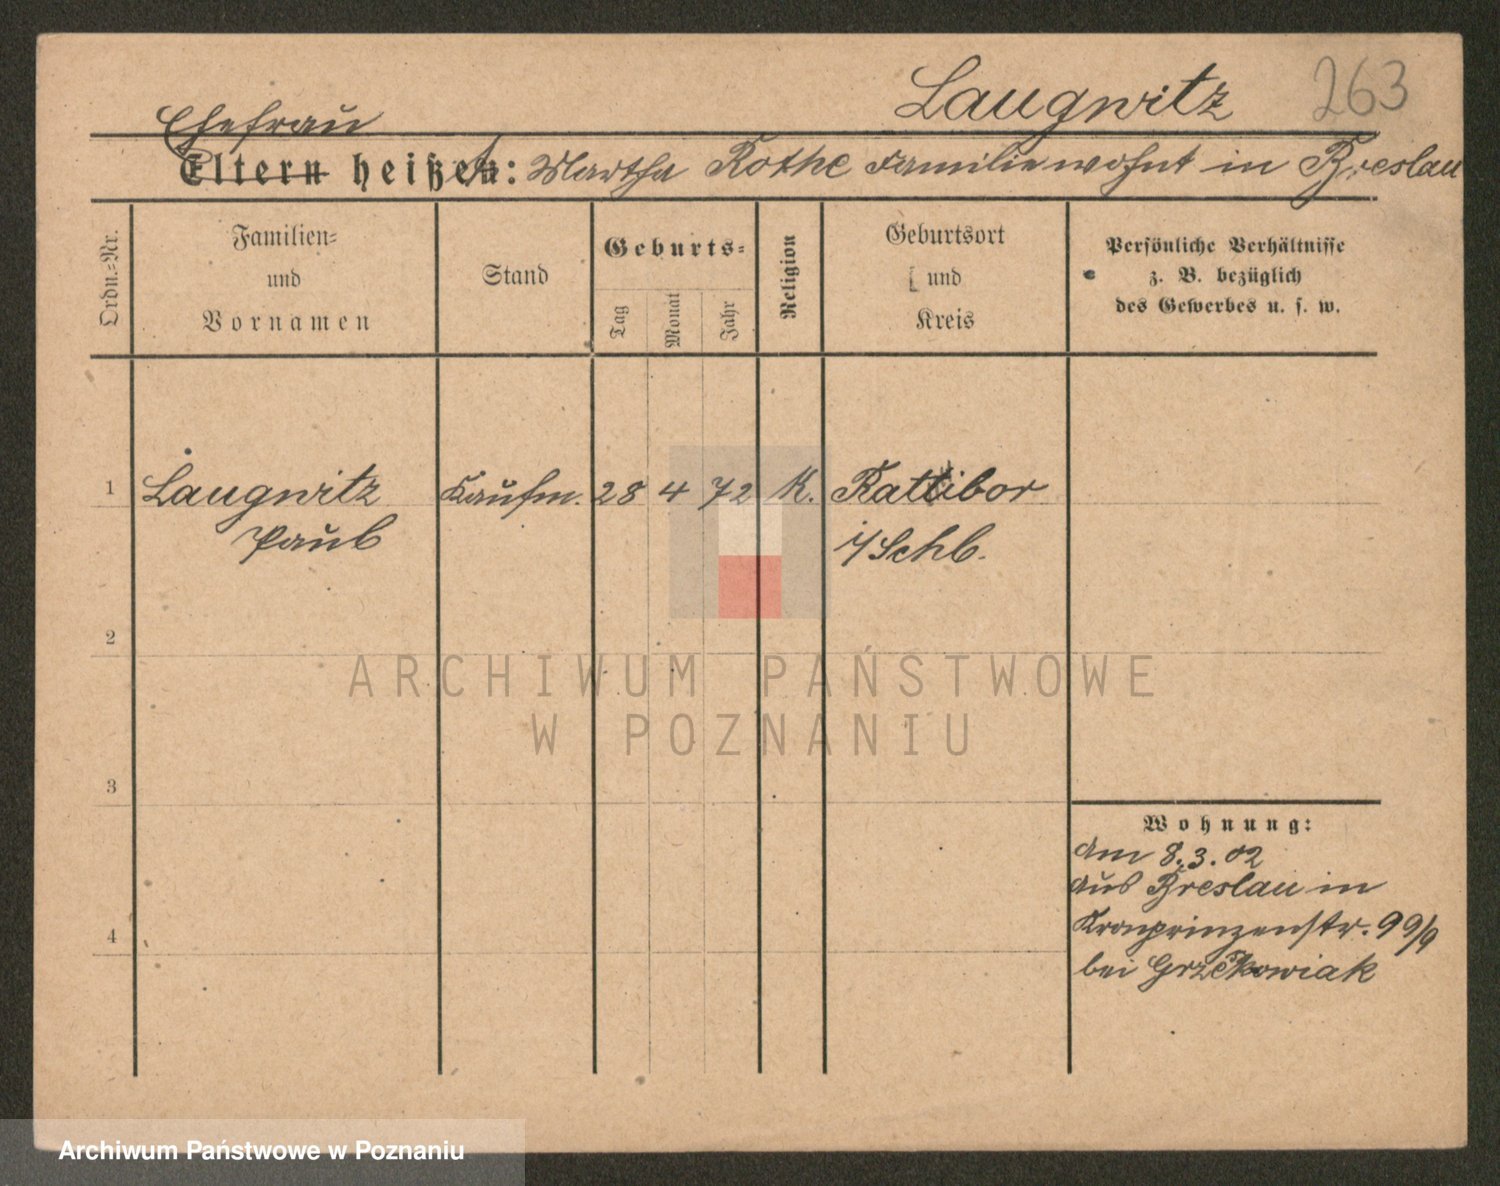 Laugwitz 263
Ehefrau
Eltern heißen: Martha Rothe Familie wohnt in Breslau
Ordn.-Nr.
Familien-
und
Vornamen
Stand
Geburts-
Tag
Monat
Jahr
Religion
Geburtsort
und
Kreis
Persönliche Verhältnisse
z. B. bezüglich
des Gewerbes u. s. w.
1 Laugwitz Kaufm. 28 4 72 K. Rattibor
Paul i/Schl.
2
3
4
Wohnung:
Am 8.3.02
aus Breslau in
Kronprinzenstr. 99/9
bei Grzékowiak
ARCHIWUM PAŃSTWOWE
W POZNANIU
Archiwum Państwowe w Poznaniu